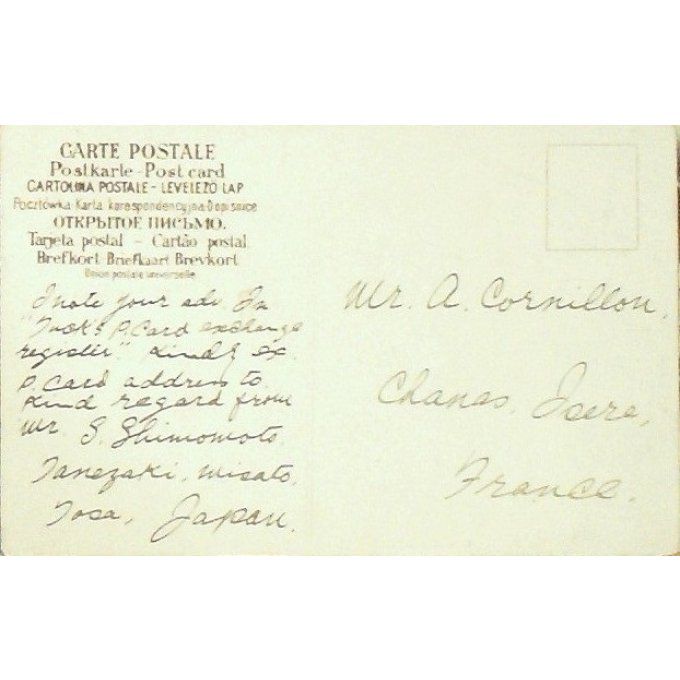 CARTE POSTALE
Postkarte - Post card
CARTOLINA POSTALE - LEVELEZŐ LAP
Pocztówka Karta korespondencyjna Dopisnice
ОТКРЫТОЕ ПИСЬМО.
Tarjeta postal - Cartão postal
Brefkort Briefkaart Brevkort
Union postale universelle
I note your adv. In
"Tuck's P.Card exchange
register". Kindly ex.
P.Card address to.
Kind regard from
Mr. S. Shimomoto.
Tanezaki, Misato,
Tosa, Japan.
Mr. A. Cornillon,
Chanas, Isere,
France.